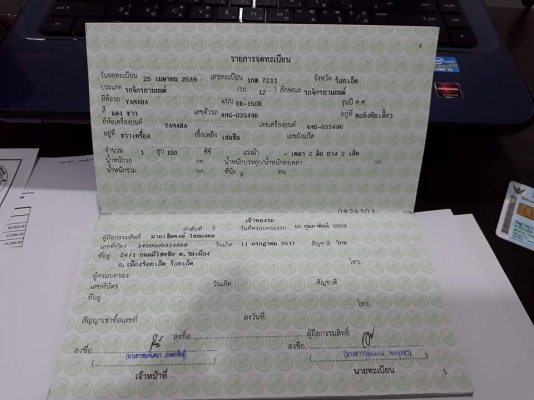 4
รายการจดทะเบียน
วันจดทะเบียน 25 เมษายน 2539 เลขทะเบียน 1กส 7211 จังหวัด ร้อยเอ็ด
ประเภท รถจักรยานยนต์ (รย. 12 ) ลักษณะ รถจักรยานยนต์
ยี่ห้อรถ YAMAHA แบบ VR-150R รุ่นปี ค.ศ.
สี แดง ขาว เลขตัวรถ 4MG-035496 อยู่ที่ คอถังคัทเลี้ยว
ยี่ห้อเครื่องยนต์ YAMAHA เลขเครื่องยนต์ 4MG-035496
อยู่ที่ ขวาเครื่อง เชื้อเพลิง เบนซิน เลขถังแก๊ส
จำนวน 1 สูบ 150 ซีซี แรงม้า - เพลา 2 ล้อ ยาง 2 เส้น
น้ำหนักรถ กก. น้ำหนักบรรทุก/น้ำหนักลงเพลา กก.
น้ำหนักรวม กก. ที่นั่ง 2 คน
เจ้าของรถ
ลำดับที่ วันที่ครอบครองรถ 15 กุมภาพันธ์ 2559
ผู้ถือกรรมสิทธิ์
เลขที่บัตร 3450500424668 วันเกิด 11 กรกฎาคม 2517 สัญชาติ ไทย
ที่อยู่ 24/1 ต.ในเมือง
อ.เมืองร้อยเอ็ด ร้อยเอ็ด โทร.
ผู้ครอบครอง
เลขที่บัตร วันเกิด สัญชาติ
ที่อยู่
โทร.
สัญญาเช่าซื้อเลขที่ ลงวันที่
ลงชื่อ ผู้ถือกรรมสิทธิ์
ลงชื่อ ลงชื่อ
เจ้าหน้าที่ นายทะเบียน
5